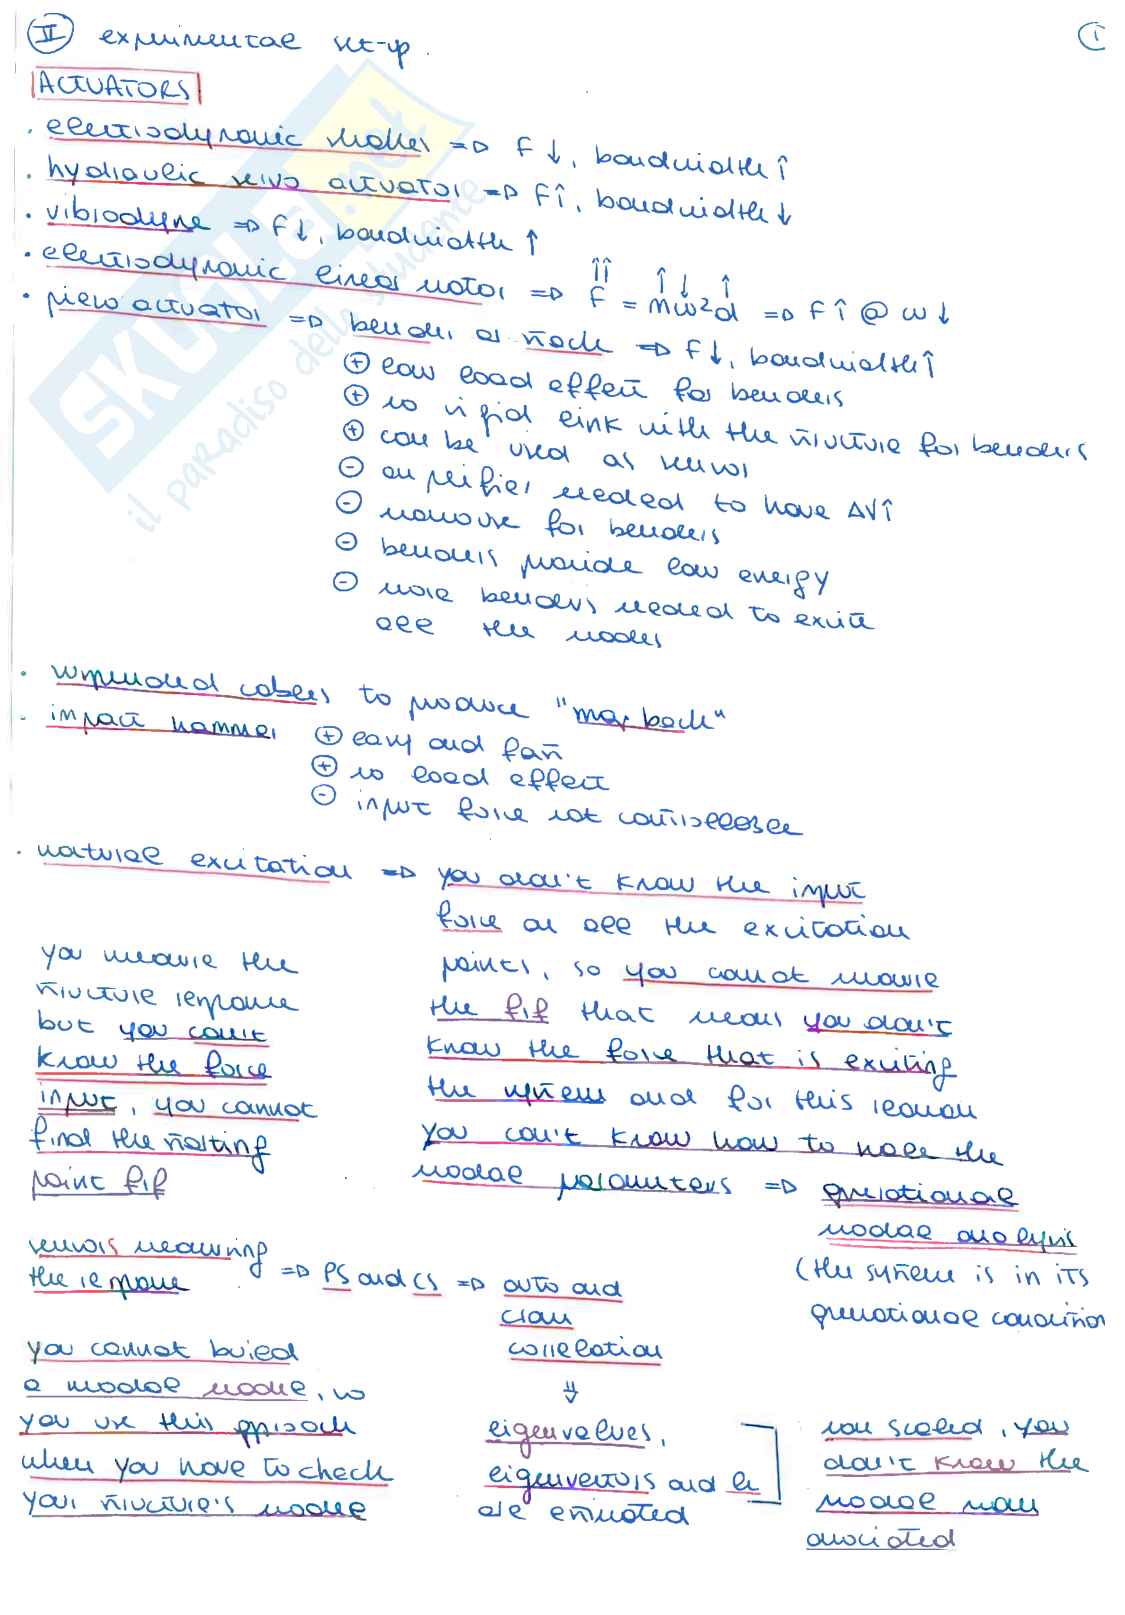 II experimental set-up.
1
ACTUATORS
· electrodynamic shaker => F ↓, bandwidth ↑
· hydraulic servo actuator => F↑, bandwidth ↓
· vibrodyne => F↓, bandwidth ↑
· electrodynamic linear motor => F = mω²d => F ↑ @ ω ↓
· piezo actuator => bender or stack => F↓, bandwidth↑
+ low load effect for benders
+ no rigid link with the structure for benders
+ can be used as sensor
- amplifier needed to have ΔV↑
- for benders
- benders provide low energy
- more benders needed to excite
all the modes
· suspended cables to produce "step back"
· impact hammer + easy and fast
+ no load effect
- input force not controllable
· natural excitation => you don't know the input
force on all the excitation
points, so you cannot measure
the frf that means you don't
know the force that is exciting
the system and for this reason
you can't know how to have the
modal parameters => operational
modal analysis
(the system is in its
operational condition
you measure the
structure response
but you can't
know the force
input, you cannot
find the starting
point frf
sensors measuring
the response => PS and CS => auto and
cross
correlation
⇓
eigenvalues,
eigenvectors and h
are estimated
non scaled, you
don't know the
modal mass
associated
you cannot build
a modal model, so
you use this approach
when you have to check
your structure's model
SKUOLA.net
il paradiso dello studente